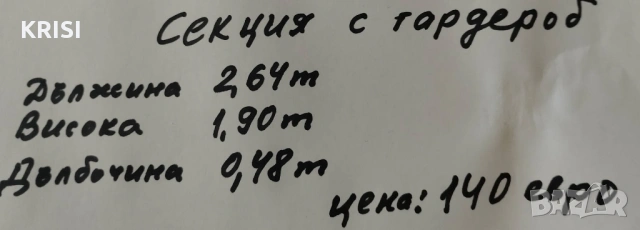 KRISI
Секция с гардероб
Дължина 2,64m
Висока 1,90m
Дълбочина 0,48m
цена: 140 евро.
bazar